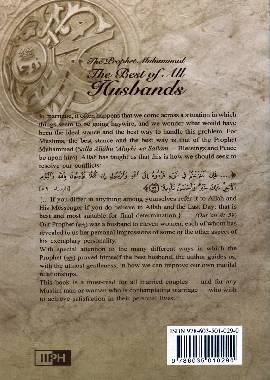 The Prophet Muhammad
The Best of All
Husbands
In marriage, it often happens that we come across a situation in which
things seem to be going haywire, and we wonder what would have
been the ideal stance and the best way to handle this problem. For
Muslims, the best stance and the best way is that of the Prophet
Muhammad (Salla Allâhu 'Alayhi wa Sallam — Blessings and Peace
be upon him). Allah has taught us that this is how we should seek to
resolve our conflicts:
...If you differ in anything among yourselves refer it to Allah and
His Messenger if you do believe in Allah and the Last Day: that is
best and most suitable for final determination.) (Qur'an 4: 59)
Our Prophet (ﷺ) was a husband to eleven women, each of whom has
revealed to us her personal impressions of some or the other aspect of
his exemplary personality.
With special attention to the many different ways in which the
Prophet (ﷺ) proved himself the best husband, the author guides us,
with the utmost gentleness, in how we can improve our own marital
relationships.
This book is a must-read for all married couples — and for any
Muslim man or woman who is contemplating marriage — who wish
to achieve satisfaction in their personal lives.
IIPH
ISBN 978-603-501-029-0
9 786035 010290